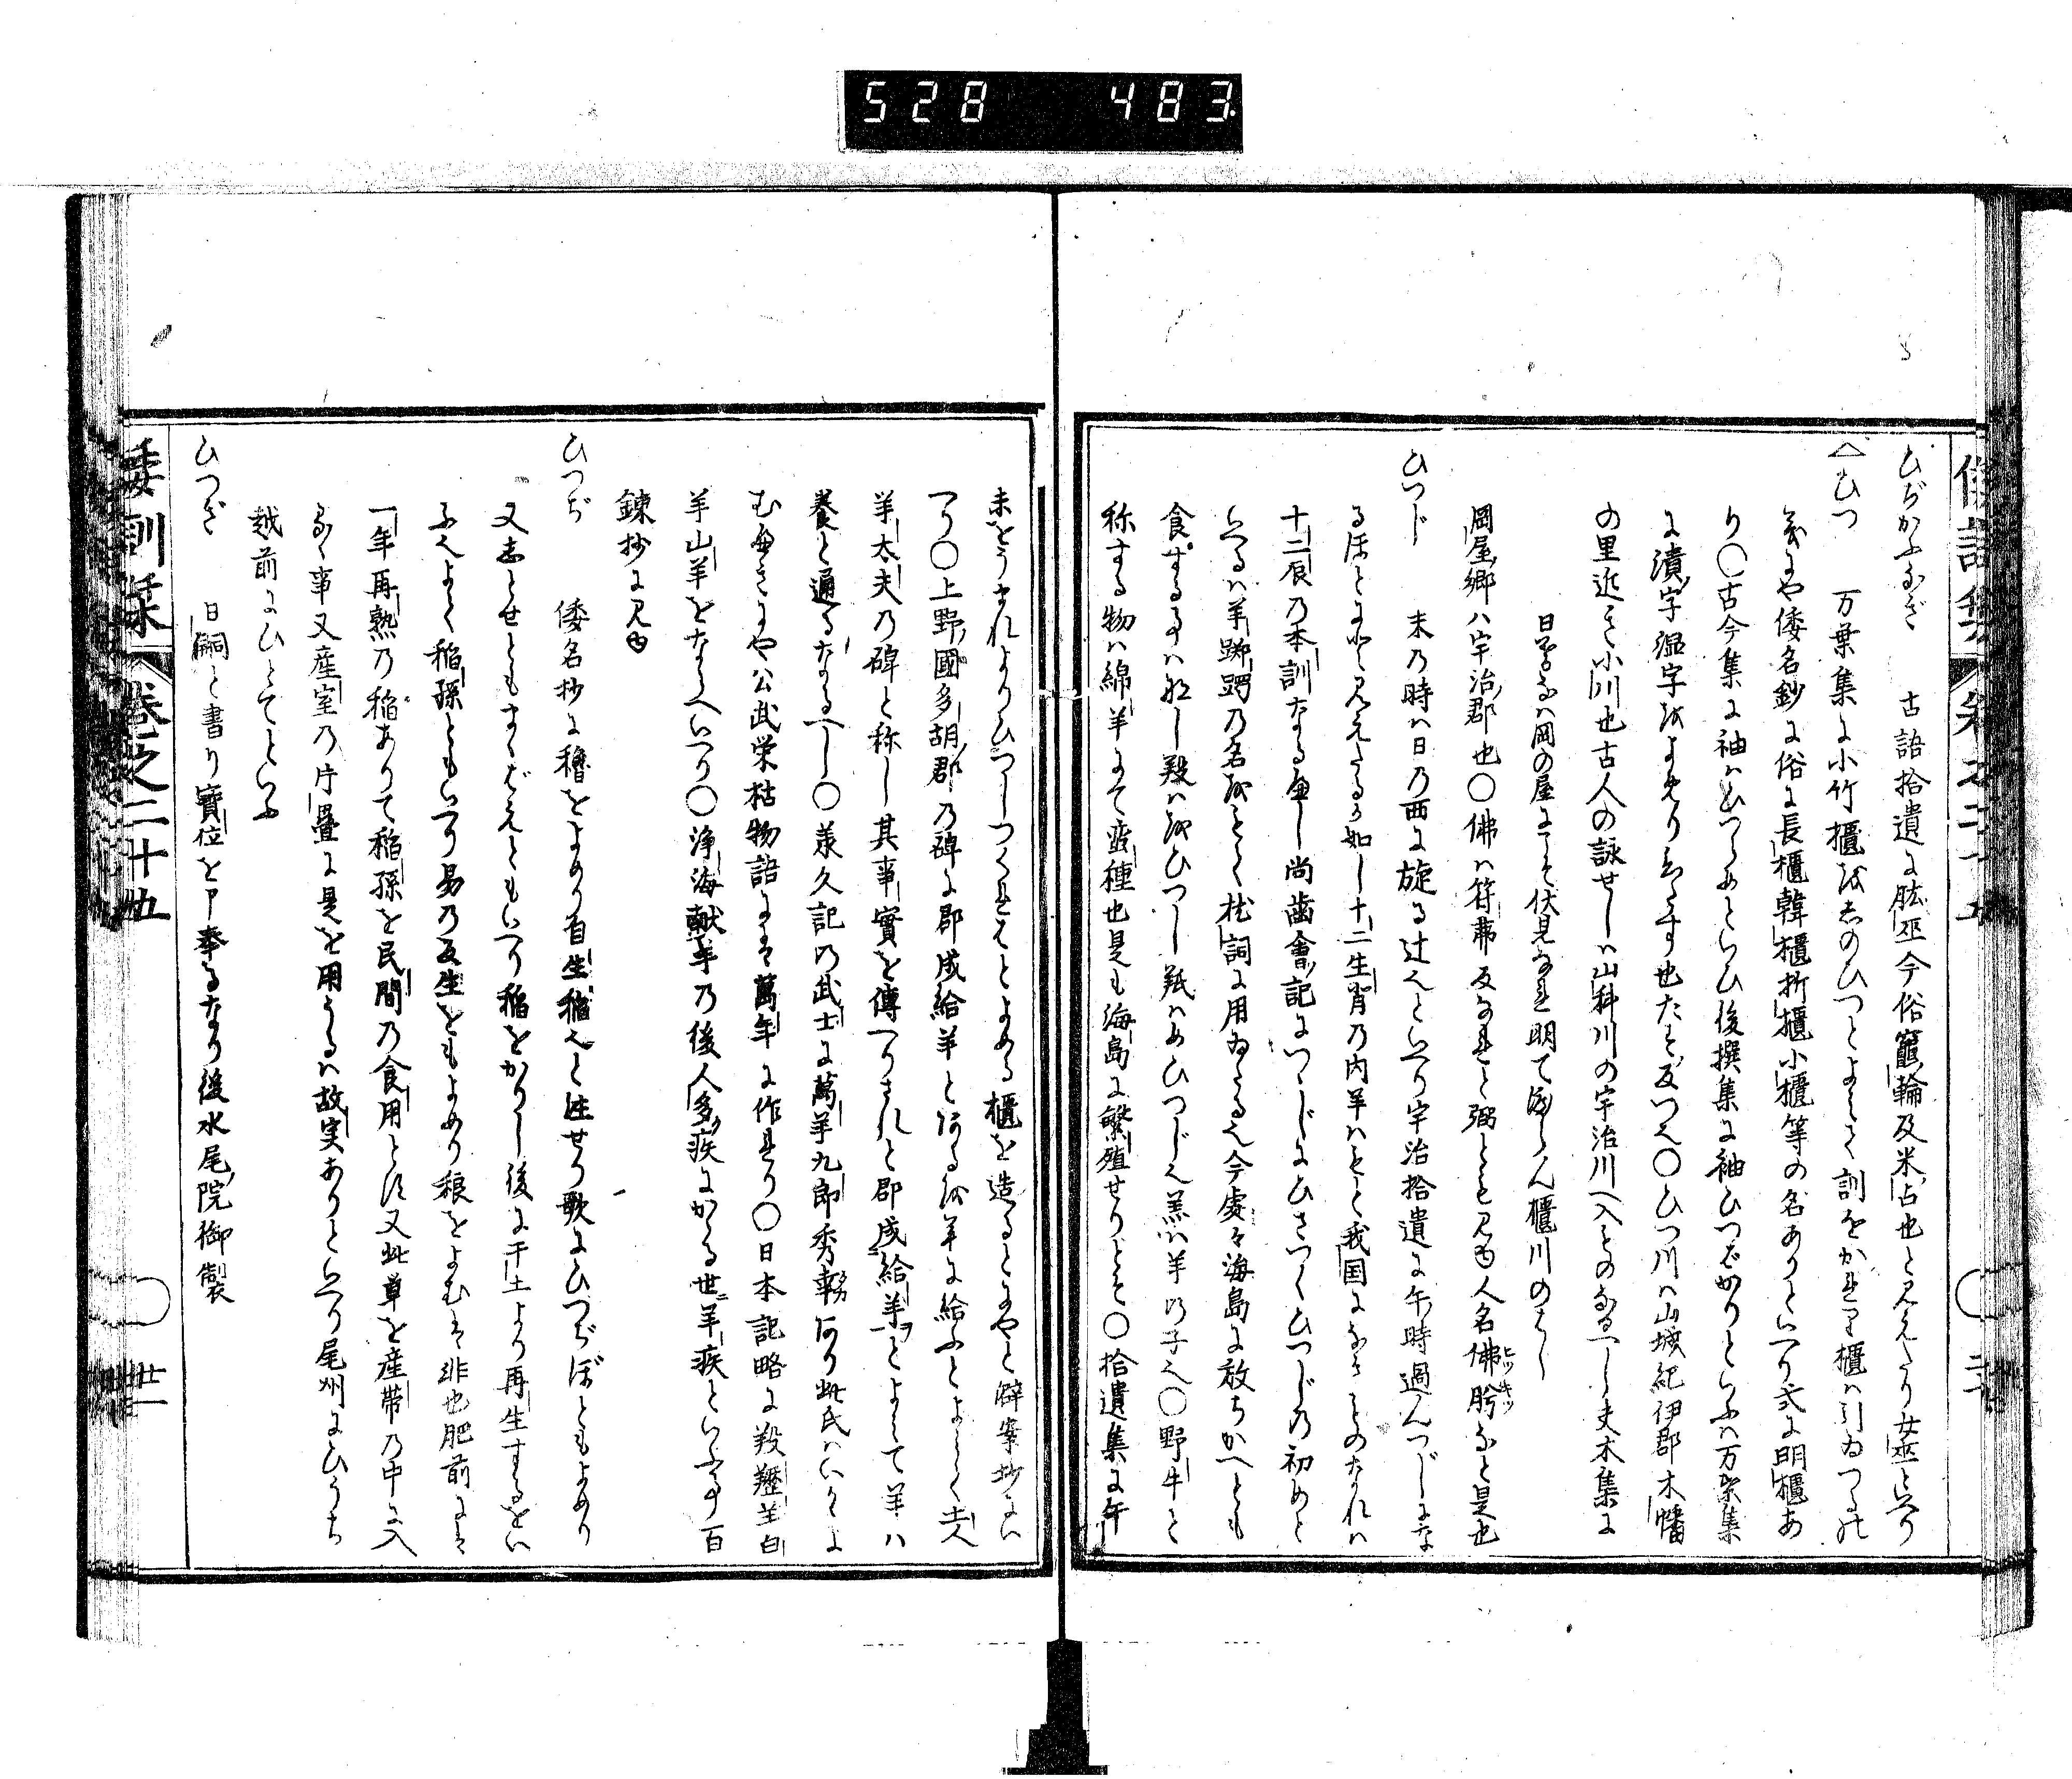 528 483
ひぢかふなぎ 古語拾遺に肱巫今俗竈輪及米占也と見えたり女巫といへり
△ひつ 万葉集に小竹櫃をしのひつとよみて訓をかけり櫃は引ゐつるの
義にや倭名鈔に俗に長櫃韓櫃折櫃小櫃等の名ありといへり式に明櫃あ
り〇古今集に袖はひつらめといひ後撰集に袖ひつばかりといふは万葉集
に漬字湿字をよめりひたす也たす反つ也〇ひつ川は山城紀伊郡木幡
の里近き小川也古人の詠せしは山科川の宇治川へ入との なるへし夫木集に
日 は岡の屋にこそ伏見なれ明て渡らん櫃川のはし
岡屋郷ハ宇治郡也〇佛は符弗反なれと弼とも見ゆ人名佛肹なと是也
ヒツキツ
ひつじ 未乃時は日乃西に旋る辻也といへり宇治拾遺に午時過ひつじにな
るほとにと見えたるか如し十二生肖乃内羊はもと我国になきものなれは
十二辰乃本訓なるへし尚歯會記につゝじにひさつくひつじの初めと
いへるは羊躑躅乃名をもて枕詞に用ゐたる也今處々海島に放ちかへとも
食する事は稀し羖はをひつし羝はめひつじ也羔は羊の子也〇野牛と
称する物は綿羊にて蛮種也是も海島に繁殖せりとそ〇拾遺集に午
未をうまれよりひつしつくれはとよめる櫃を造るとにやと僻案抄にい
へり〇上野國多胡郡乃碑に郡成給羊とあるを羊に給ふとよみて土人
羊太夫乃碑と称し其事實を傳へりされと郡成給羊とよみて羊ハ
養と通るなるへし〇承久記の武士に萬羊九郎秀 あり此氏はいかによ
むへきにや公武栄枯物語には萬年に作れり〇日本記略に羖䍽羊白
羊山羊をならへいへり〇浄海献羊乃後人多疾にかゝる世羊疾といふ事百
錬抄に見ゆ
ひつぢ 倭名抄に穭をよめり自生稲也と注せり歌にひつぢぼともよめり
又志とせともまゝばえともいへり稲をかりし後に干土より再生するをい
ふ也よて稲孫ともいへり易乃反生をもよめり稂をよむは非也肥前には
一年再熟乃稲ありて稲孫を民間乃食用とす又此草を産帯乃中に入
るゝ事又産室乃片疊に是を用うるは故実ありといへり尾州にひうち
越前にひとてといふ
ひつぎ 日嗣と書り寶位を申奉るなり後水尾院御製
倭訓栞 巻之二十五 廿一